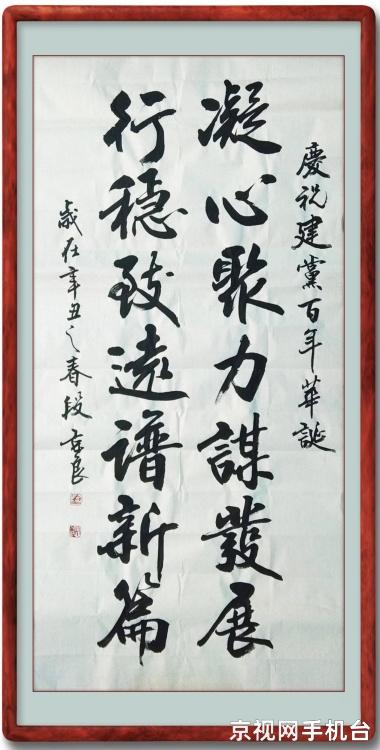 慶祝建黨百年華誕
凝心聚力謀發展
行穩致遠譜新篇
歲在辛丑之春段京良
京视网手机台